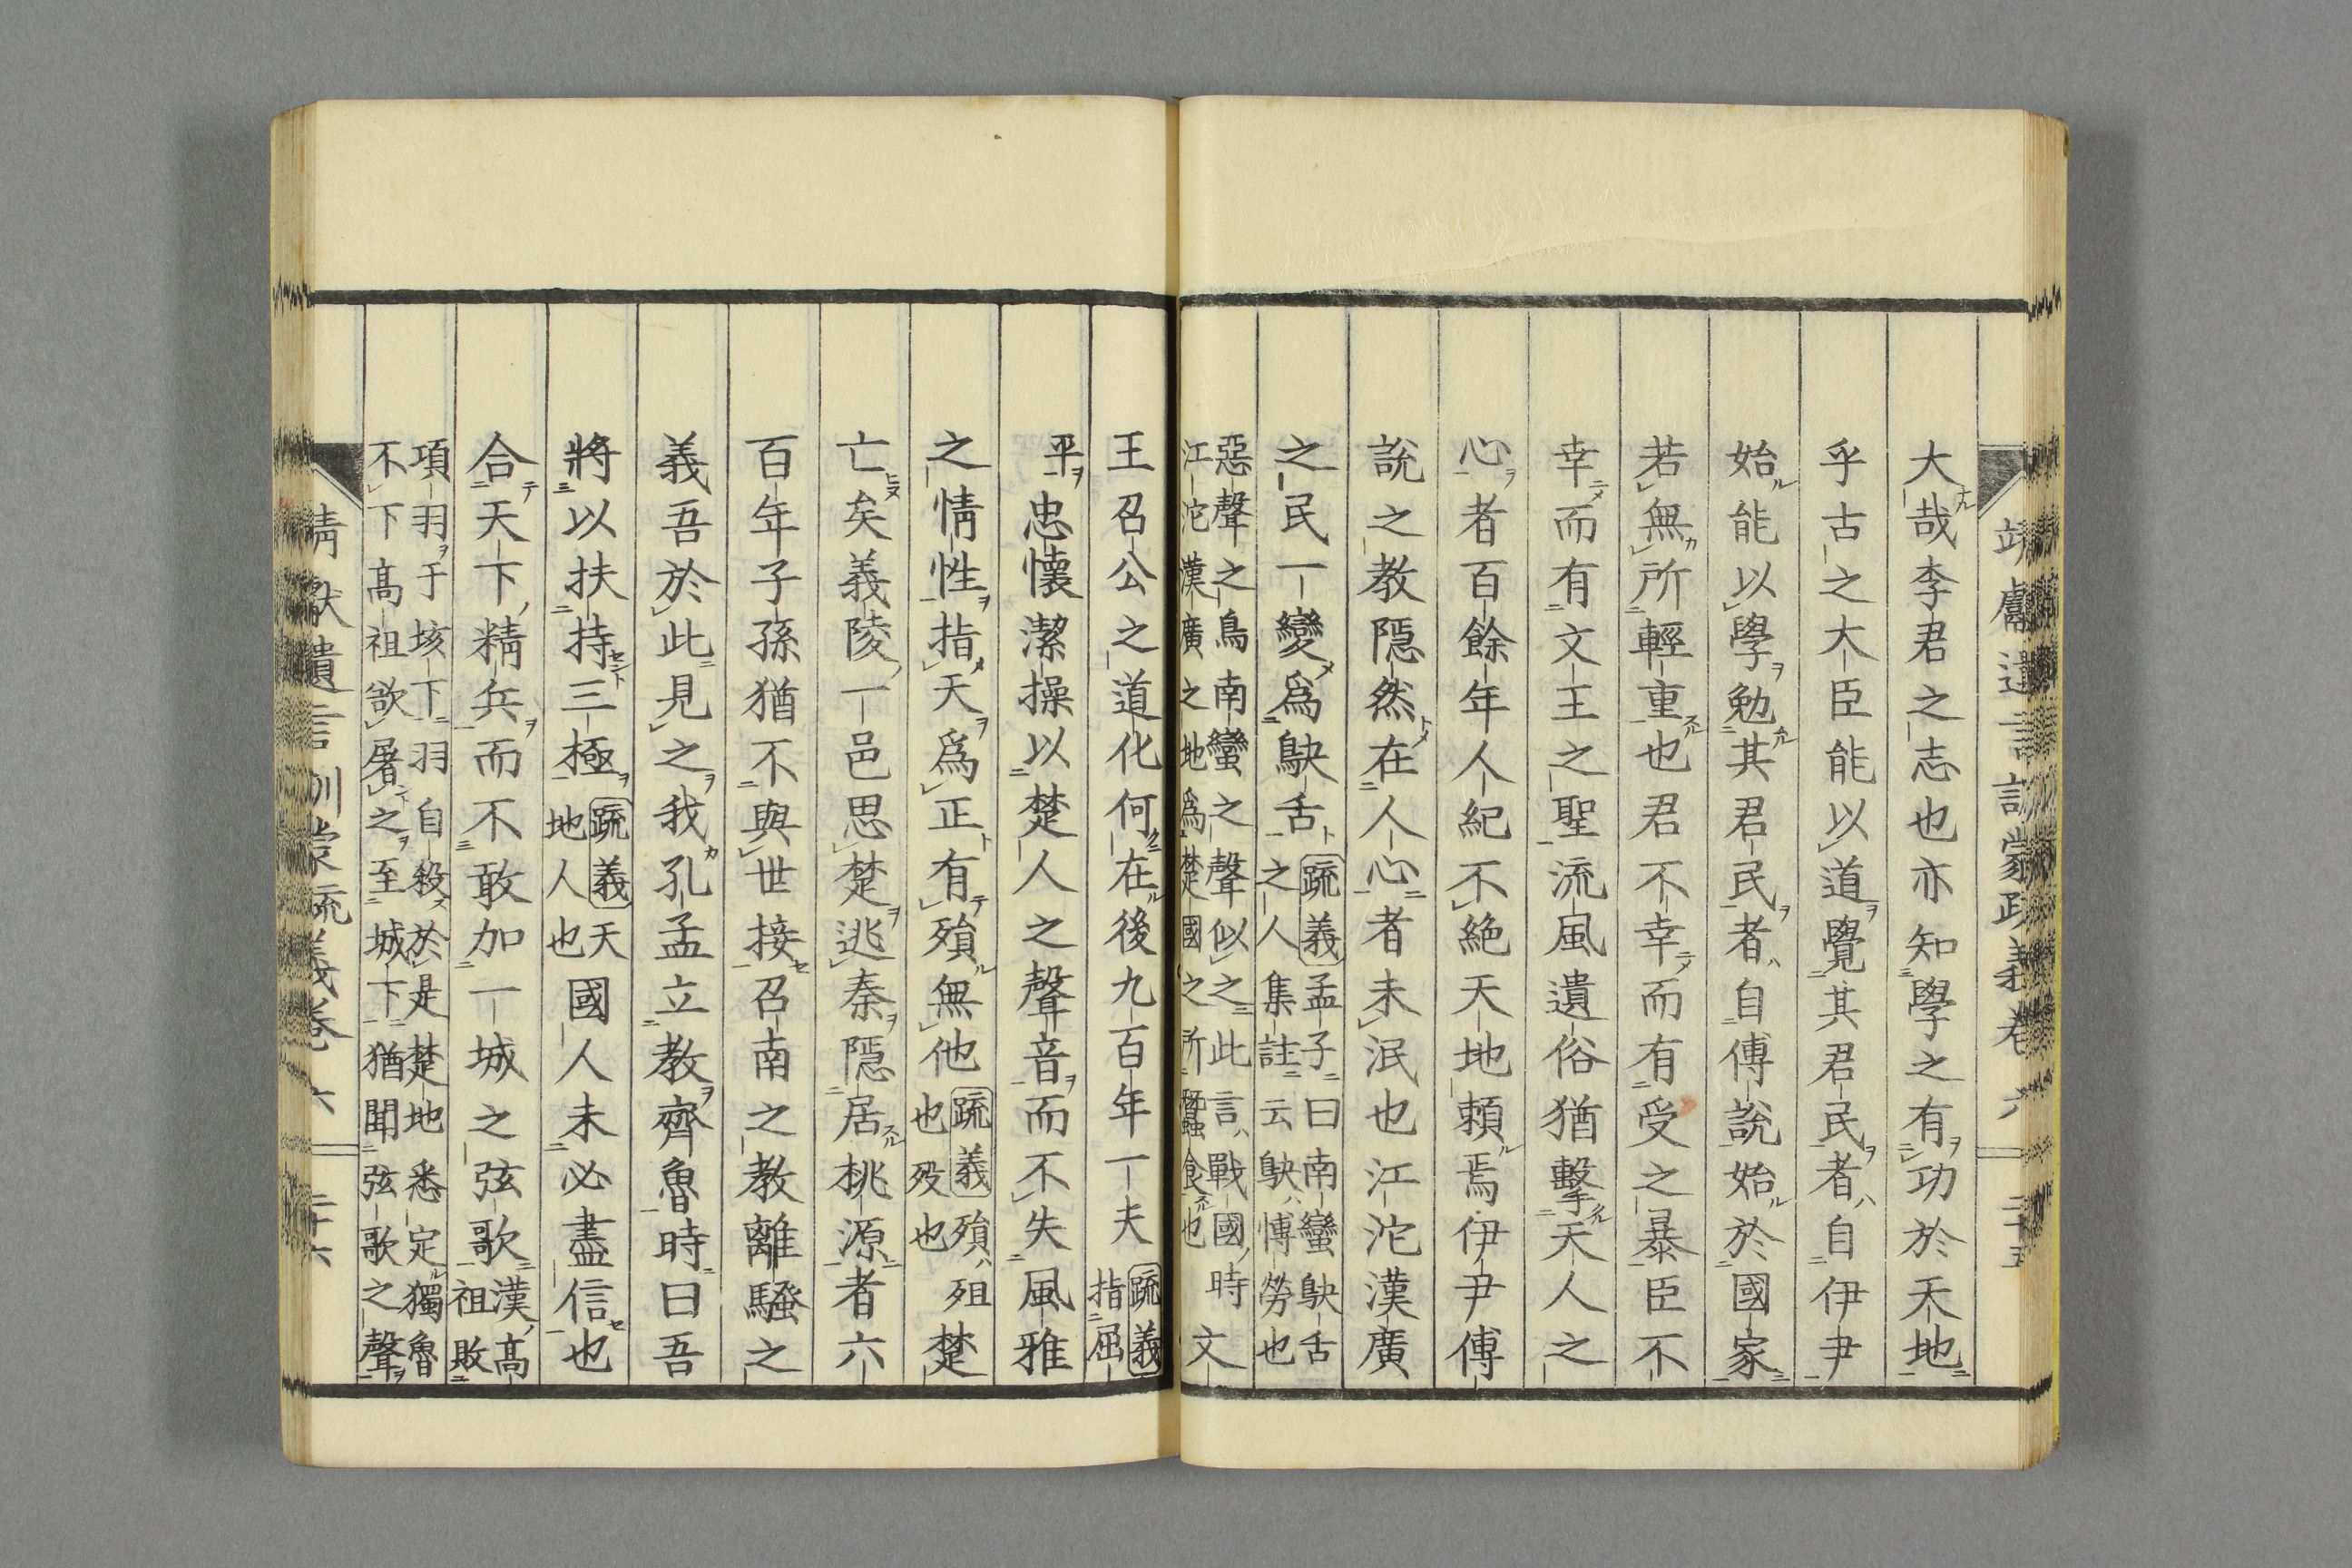 靖獻遺言訓蒙疏義卷六 二十五
大哉李君之志也亦知學之有功於天地
乎古之大臣能以道覺其君民者自伊尹
始能以學勉其君民者自傅說始於國家
若無所輕重也君不幸而有受之暴臣不
幸而有文王之聖流風遺俗猶擊天人之
心者百餘年人紀不絶天地頼焉伊尹傅
說之教隱然在人心者未泯也江沱漢廣
之民一變爲鴃舌
疏義孟子曰南蠻鴃舌
之人集註云鴃博勞也
惡聲之鳥南蠻之聲似之此言戰國時
江沱漢廣之地爲楚國之所蠶食也
文
王召公之道化何在後九百年一夫
疏義
指屈
平
忠懷潔操以楚人之聲音而不失風雅
之情性指天爲正有殞無他
疏義殞殂
也歿也
楚
亡矣義陵一邑思楚逃秦隱居桃源者六
百年子孫猶不與世接召南之教離騷之
義吾於此見之我孔孟立教齊魯時曰吾
將以扶持三極
疏義天
地人也
國人未必盡信也
合天下精兵而不敢加一城之弦歌
漢高
祖敗
項羽于垓下羽自殺於是楚地悉定獨魯
不下高祖欲屠之至城下猶聞弦歌之聲
靖獻遺言訓蒙疏義卷六 二十六